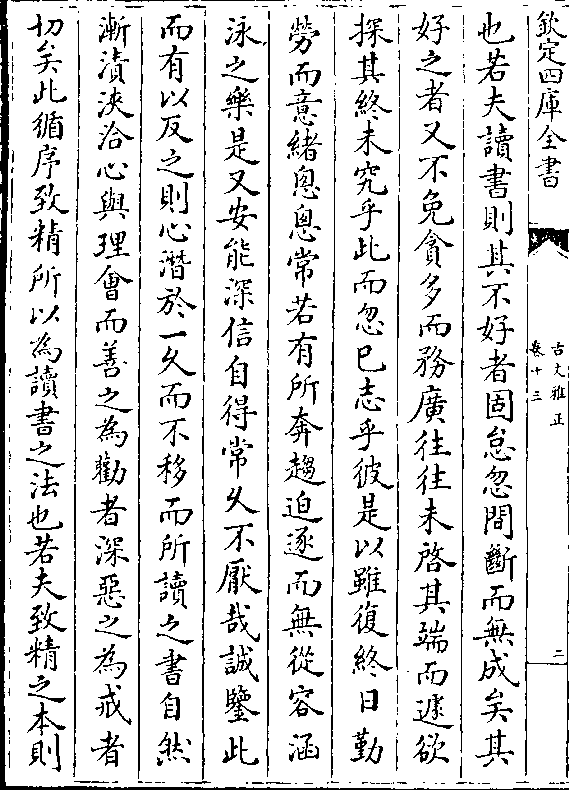 欽定四庫全書
古文雅正
卷十三
二
也若夫讀書則其不好者固怠忽間斷而無成矣其
好之者又不免貪多而務廣往往未啓其端而遽欲
探其終未究乎此而忽已志乎彼是以雖復終日勤
勞而意緒悤悤常若有所奔趨迫逐而無從容涵
泳之樂是又安能深信自得常久不厭哉誠鑒此
而有以反之則心潛於一久而不移而所讀之書自然
漸漬浹洽心與理會而善之為勸者深惡之為戒者
切矣此循序致精所以為讀書之法也若夫致精之本則